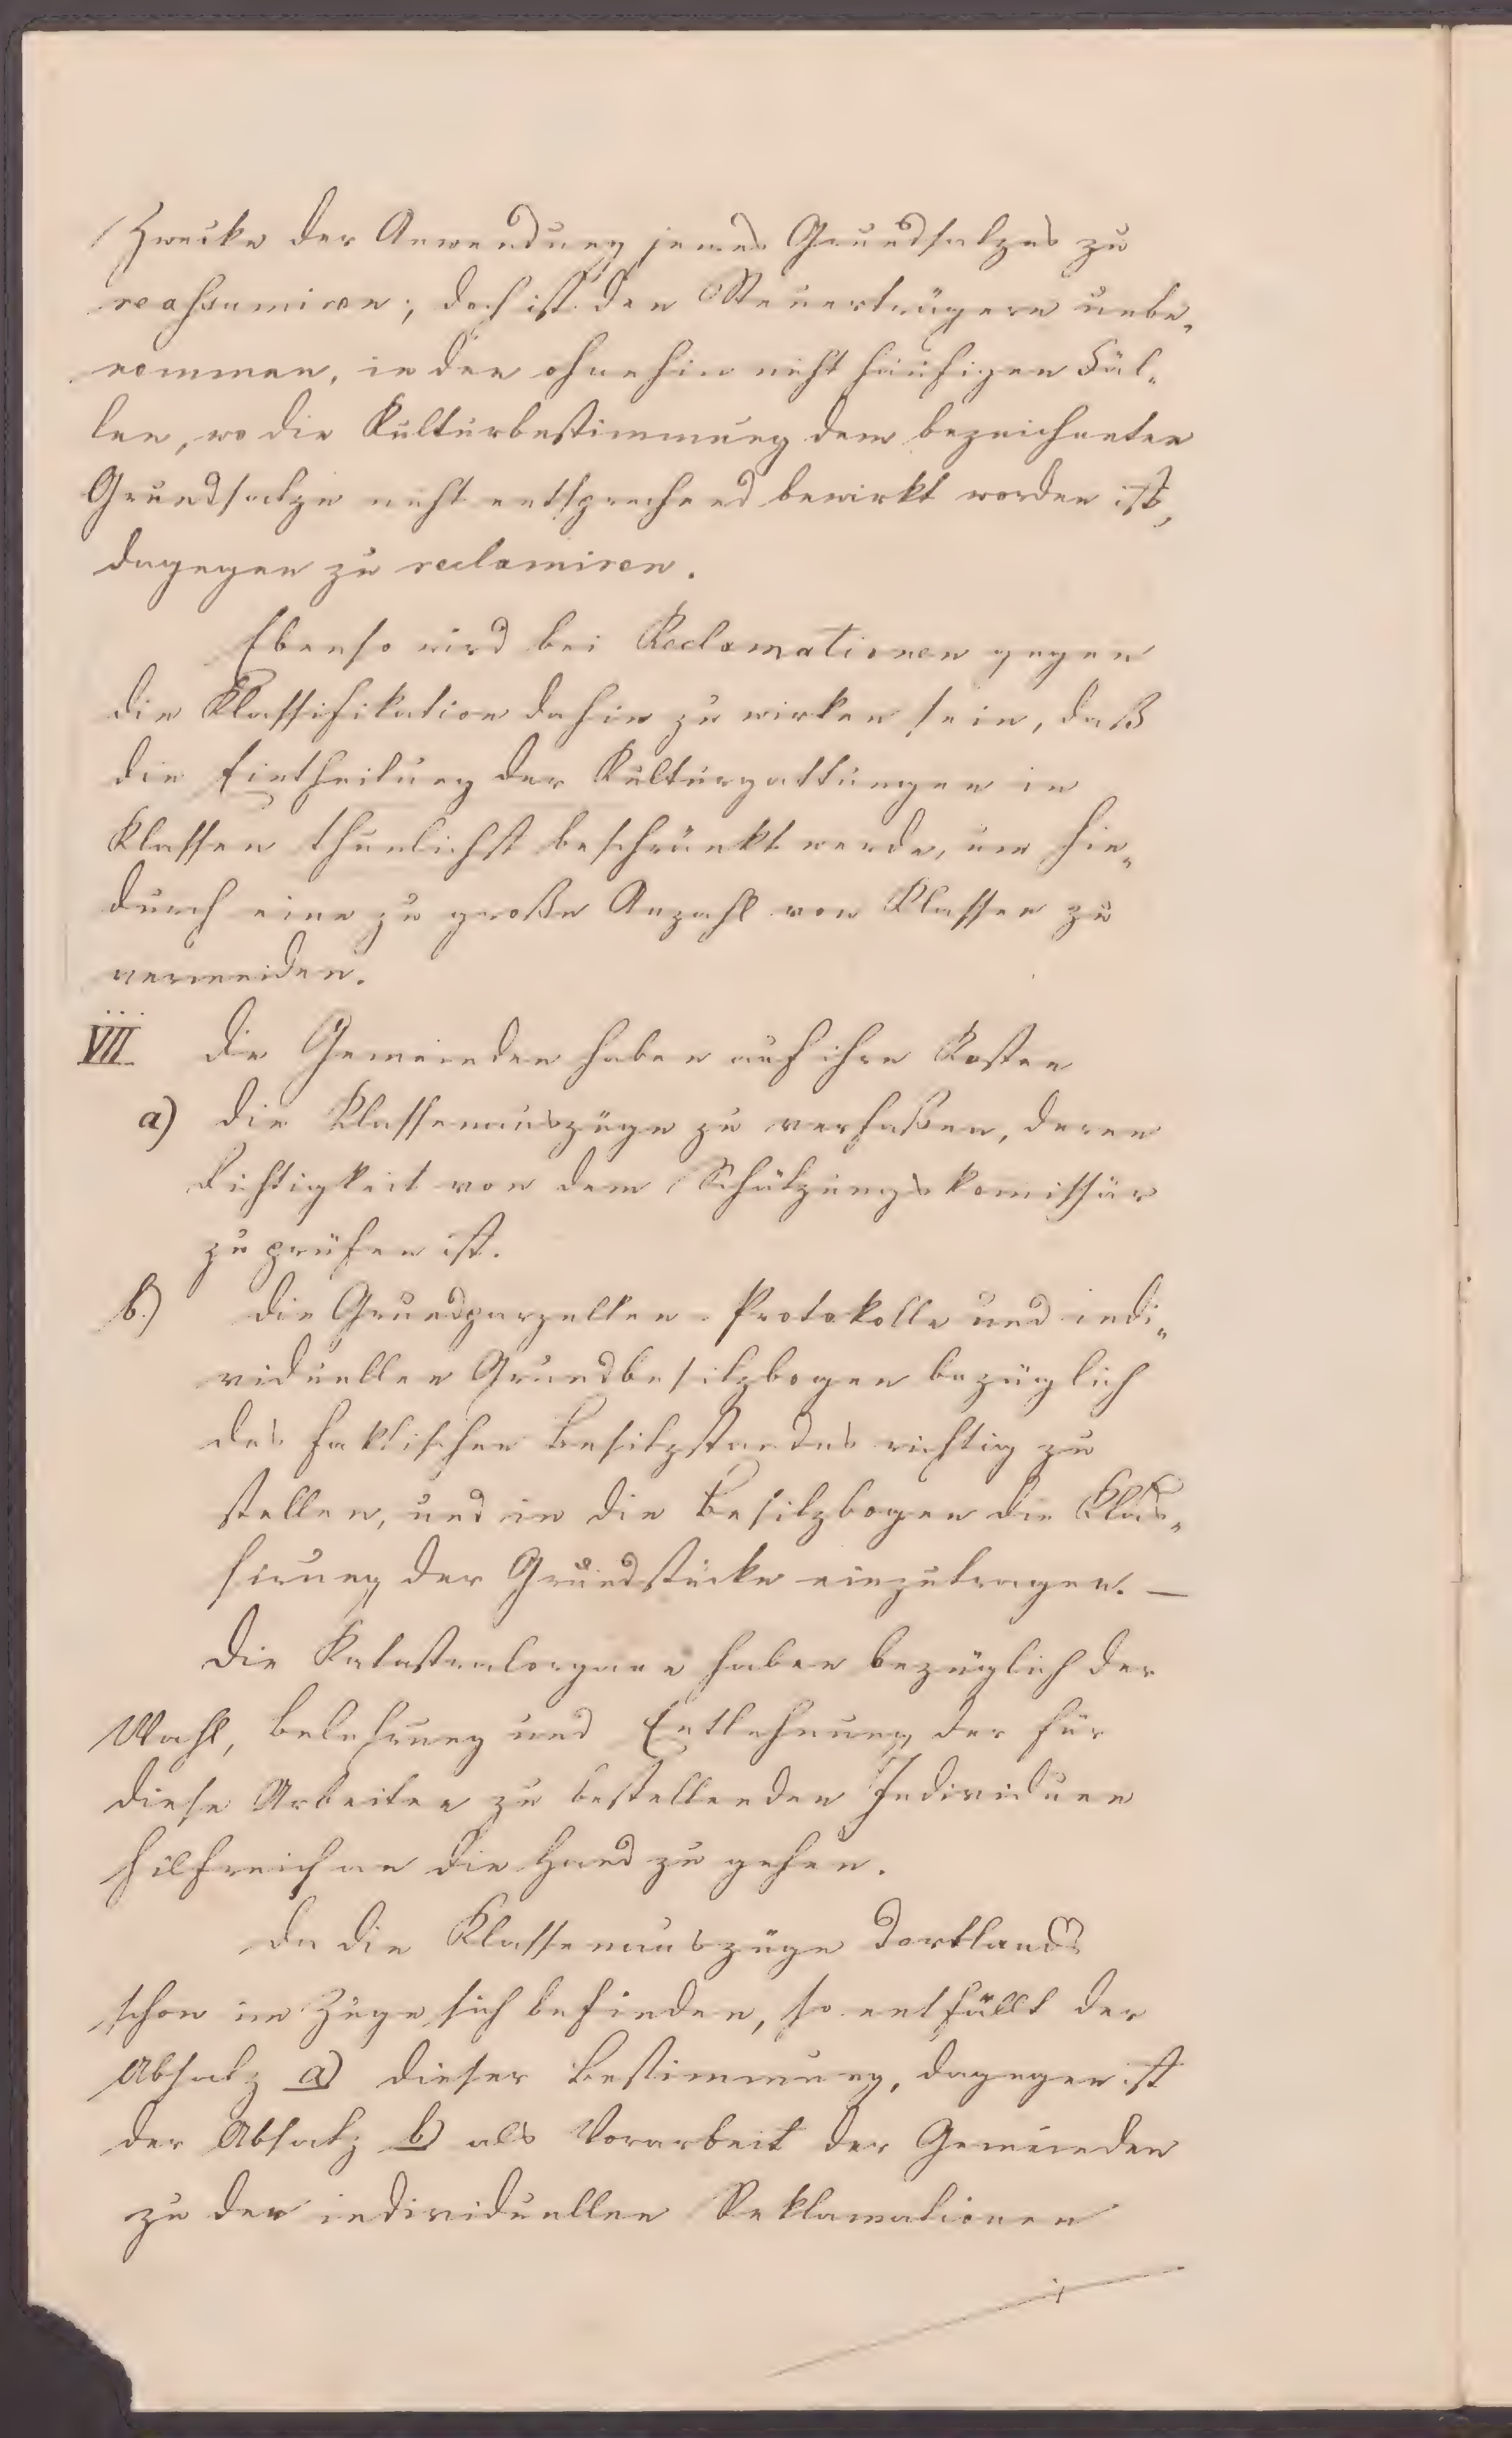 Zwecke der Anwendung jenes Grundsatzes zu
reassumiren; doch ist den Steuerträgern unbe-
nommen, in den ohnehin nicht häufigen Fäl-
len, wo die Kulturbestimmung dem bezeichneten
Grundsatze nicht entsprechend bewirkt worden ist,
dagegen zu reclamiren.
Ebenso wird bei Reclamationen gegen
die Klassifikation dahin zu wirken sein, daß
die Eintheilung der Kulturgattungen in
Klassen thunlichst beschränkt werde, um hie-
durch eine zu große Anzahl von Klassen zu
vermeiden.
VII Die Gemeinden haben auf ihre Kosten
a) die Klassenauszüge zu verfaßen, deren
Richtigkeit von dem Schätzungskomissär
zu prüfen ist.
b.) die Grundparzellen-Protokolle und indi-
viduellen Grundbesitzbogen bezüglich
des faktischen Besitzstandes richtig zu
stellen, und in die Besitzbogen die Klas-
sirung der Grundstücke einzutragen. —
Die Katastralorgane haben bezüglich der
Wahl, Belehrung und Entlohnung der für
diese Arbeiten zu bestellenden Individuen
hilfreich an die Hand zu gehen.
Da die Klassenauszüge dortlands
schon im Zuge sich befinden, so entfällt der
Absatz a) dieser Bestimmung, dagegen ist
der Absatz b) als Vorarbeit der Gemeinden
zu den individuellen Reklamationen